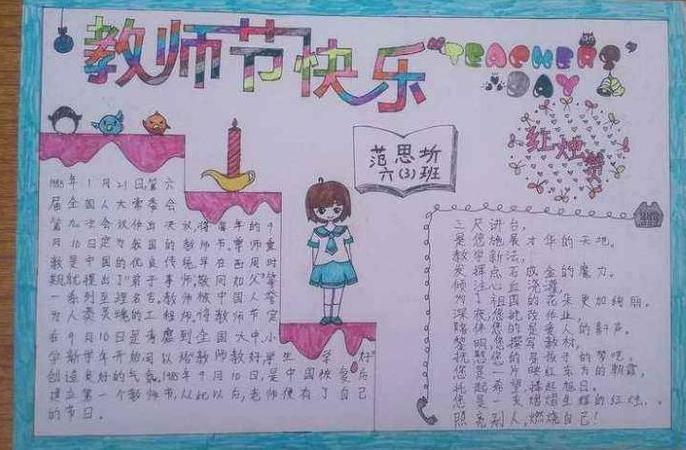 教师节快乐
"TEACHER'S"
DAY
红烛赞
范思圻
六(3)班
1985年1月21日,第六
届全国人大常委会
第九次会议作出决议,将每年的9
月10日定为我国的教师节,尊师重
教是中国的优良传统,早在西周时
期就提出了"弟子事师,敬同如父"等
一系列至理名言,教师被中国人誉
为人类灵魂的工程师,将教师节定
在9月10日是考虑到全国大中小
学新学年开始,可以给教师教好学生学好
创造良好的气氛。1985年9月10日,是中国恢复后
建立第一个教师节,从此以后,老师便有了自己
的节日。
三尺讲台,
是您施展才华的天地。
教学新法,
发挥点石成金的魔力。
倾注心血浇灌,
为了祖国的花朵更加绚丽。
深夜您批改作业,
陪伴您的是爱人的鼾声。
黎明您撰写教材,
抚慰您的是孩子的梦呓。
您是一片映红东方的朝霞,
托起希望,捧起旭日。
您是一支熠熠生辉的红烛,
照亮别人,燃烧自己!